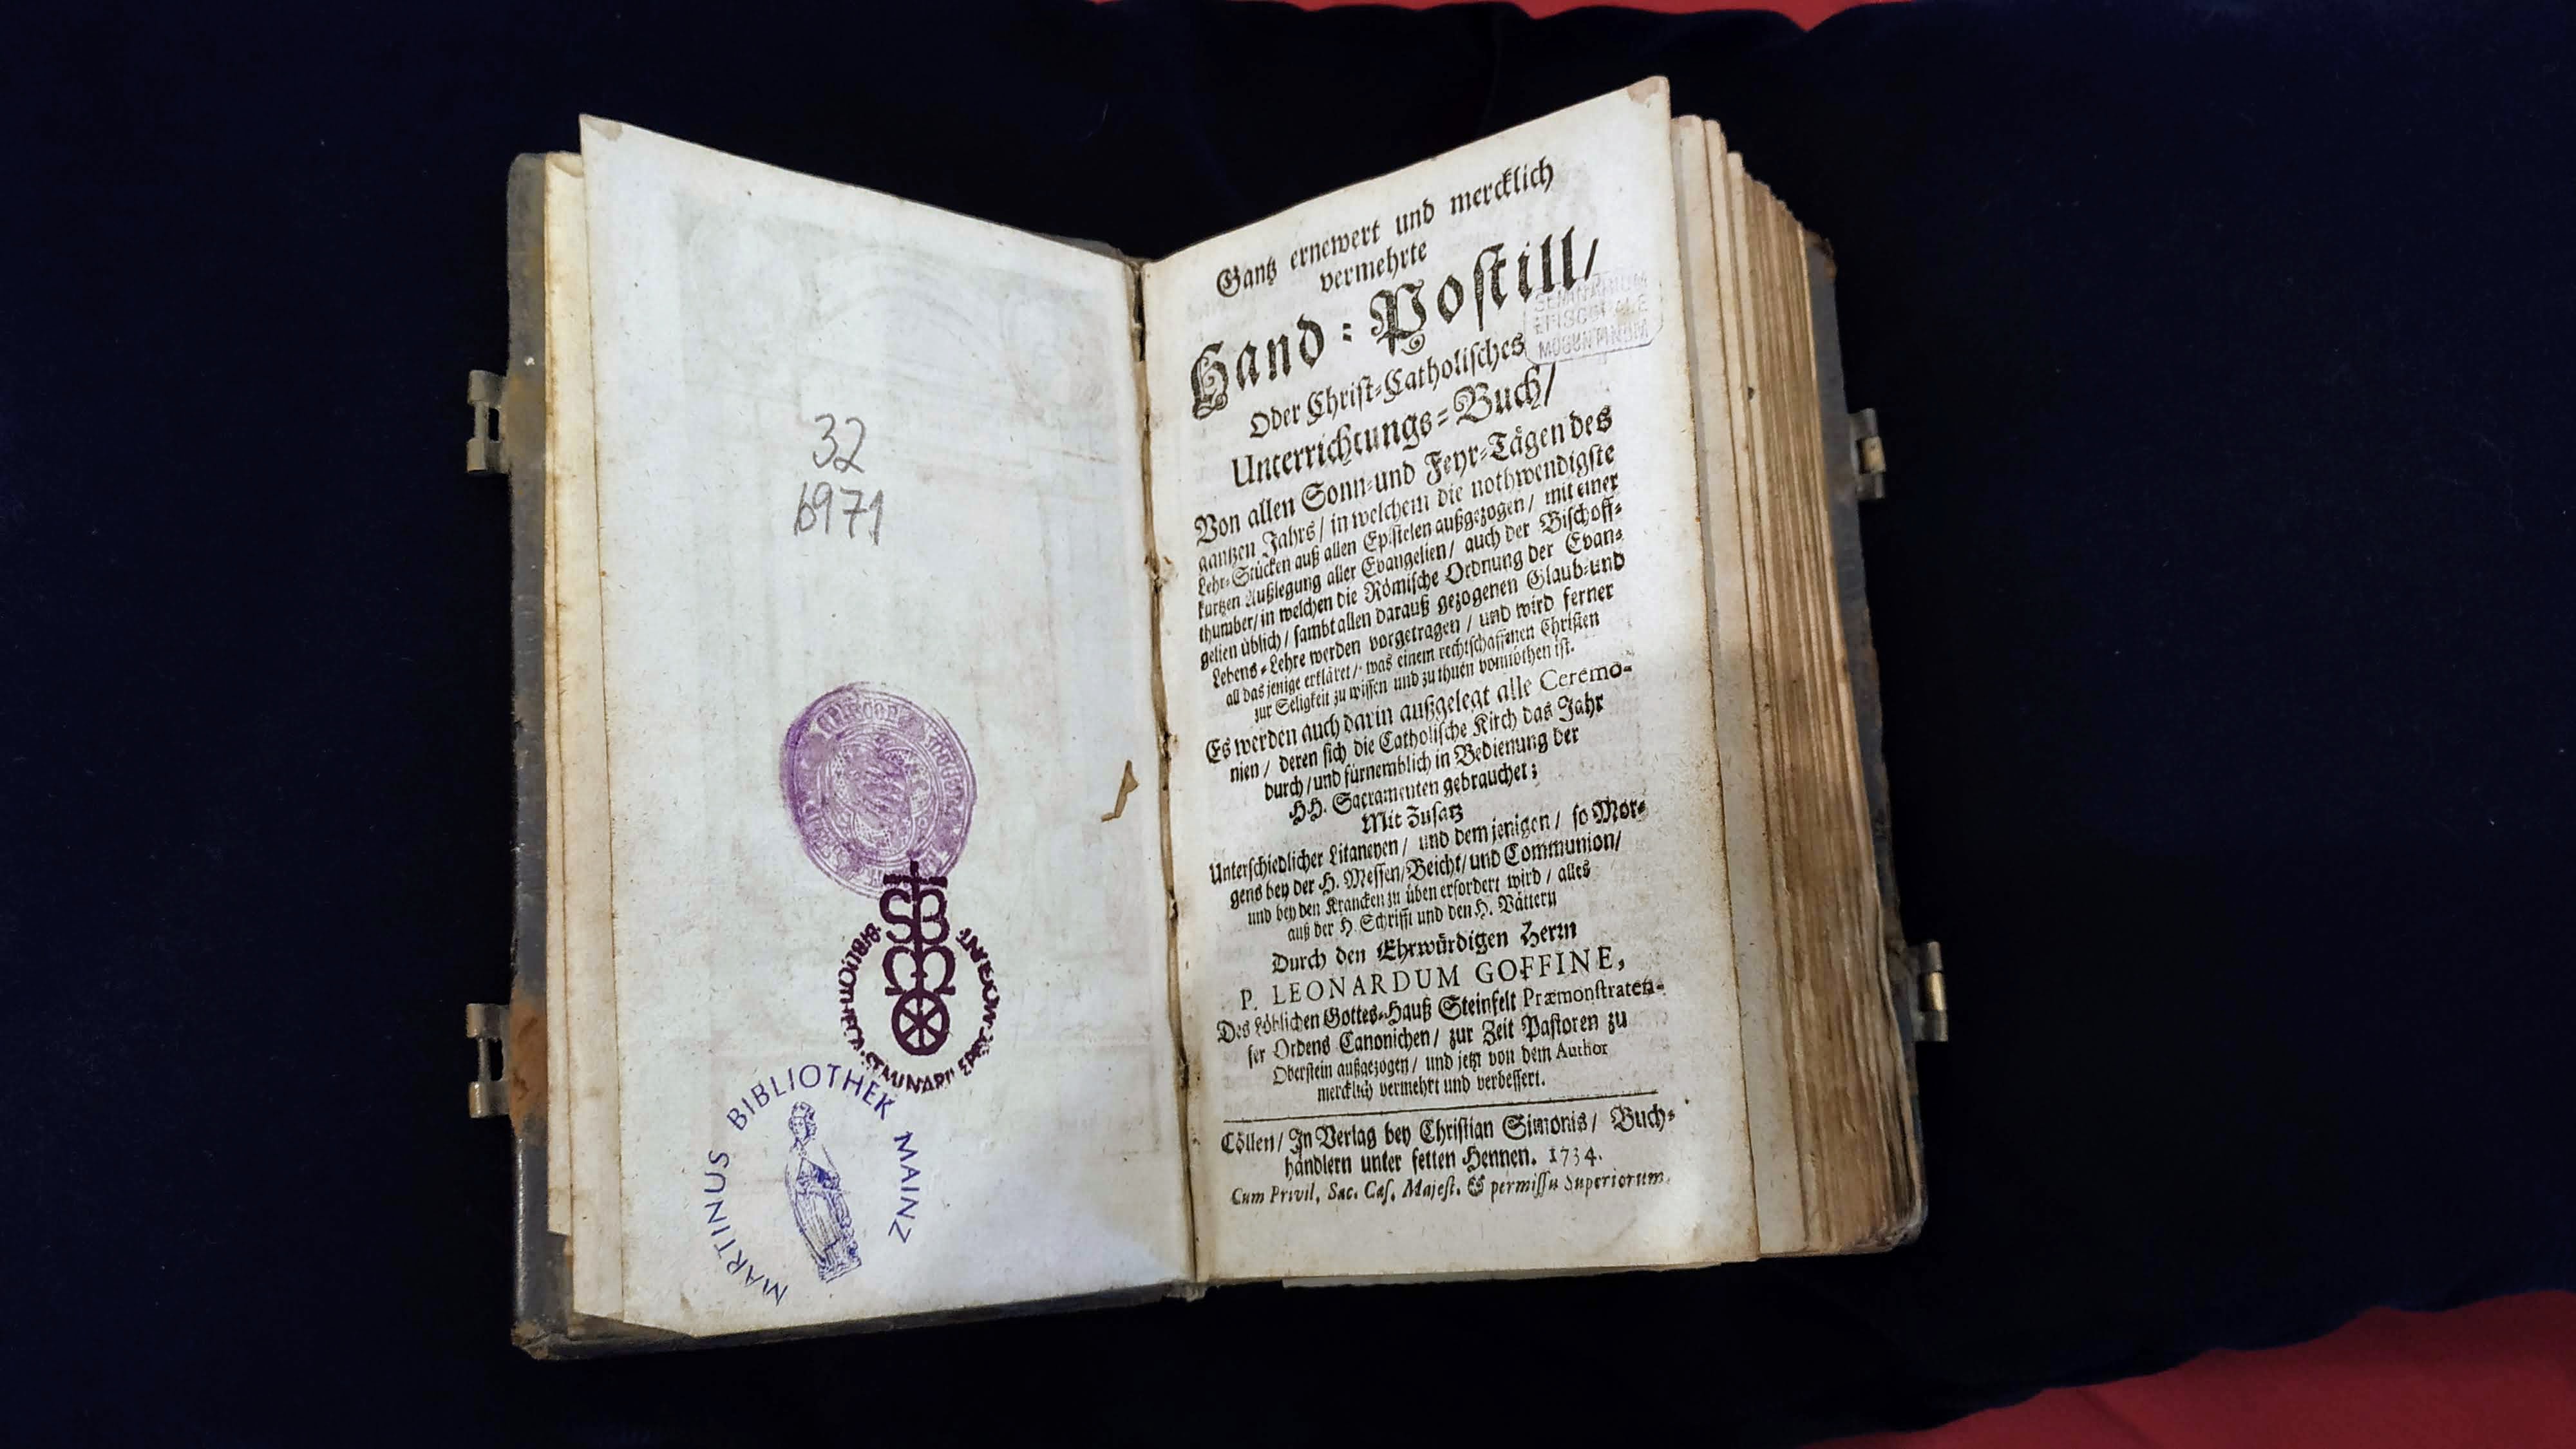 32
6971
BIBLIOTHECA SEMINARII EPISC. MOGUNT.
SB
MARTINUS BIBLIOTHEK MAINZ
Gantz ernewert und mercklich
vermehrte
Hand-Postill/
SEMINARIUM
EPISCOPALE
MOGUNTINUM
Oder Christ-Catholisches
Unterrichtungs-Buch/
Von allen Sonn-und Feyr-Tägen des
gantzen Jahrs/ in welchem die nothwendigste
Lehr-Stücken auß allen Epistelen außgezogen/ mit einer
kurtzen Außlegung aller Evangelien/ auch der Bischoff-
thumber/ in welchen die Römische Ordnung der Evan-
gelien üblich/ sambt allen darauß gezogenen Glaub-und
Lebens-Lehre werden vorgetragen/ und wird ferner
all das jenige erkläret/ was einem rechtschaffenen Christen
zur Seligkeit zu wissen und zu thuen vonnöthen ist.
Es werden auch darin außgelegt alle Ceremo-
nien/ deren sich die Catholische Kirch das Jahr
durch/ und fürnemblich in Bedienung der
HH. Sacramenten gebrauchet;
Mit Zusatz
Unterschiedlicher Litaneyen/ und dem jenigen/ so Mor-
gens bey der H. Messen/ Beicht/ und Communion/
und bey den Krancken zu üben erfordert wird/ alles
auß der H. Schrifft und den H. Vättern
Durch den Ehrwürdigen Herrn
P. LEONARDUM GOFFINE,
Des löblichen Gottes-Hauß Steinfelt Præmonstraten-
ser Ordens Canonichen/ zur Zeit Pastoren zu
Oberstein außgezogen/ und jetzt von dem Author
mercklich vermehrt und verbessert.
Cöllen/ In Verlag bey Christian Simonis/ Buch-
händlern unter fetten Hennen. 1734.
Cum Privil. Sac. Cæs. Majest. & permissu Superiorum.